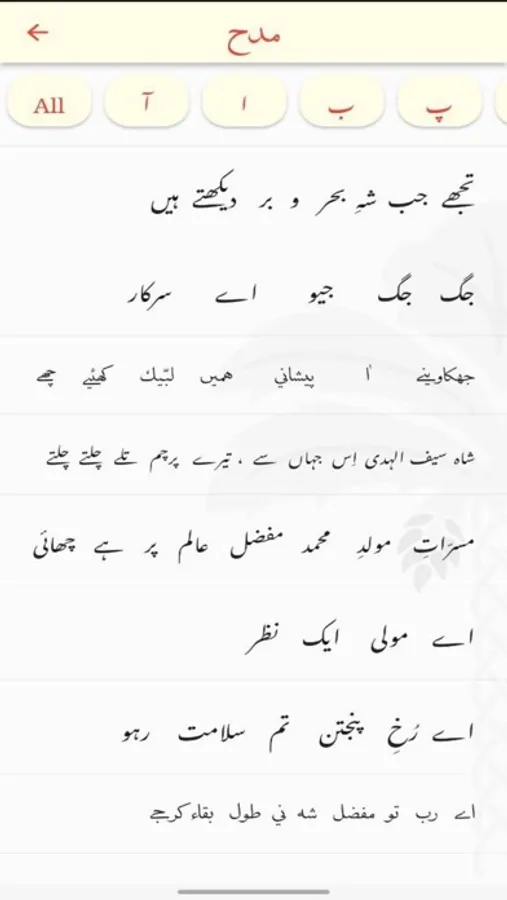 مدح
All آ ا ب پ
تجھے جب شہِ بحر و بر دیکھتے ہیں
جگ جگ جیو اے سرکار
جھكاوينے اٰ پيشاني هميں لبّيك كهئيے چھے
شاہ سیف الہدی اِس جہاں سے ، تیرے پرچم تلے چلتے چلتے
مسرّاتِ مولدِ محمد مفضل عالم پر ہے چھائی
اے مولی ایک نظر
اے رُخِ پنجتن تم سلامت رہو
اے رب تو مفضل شه ني طول بقاء كرجے